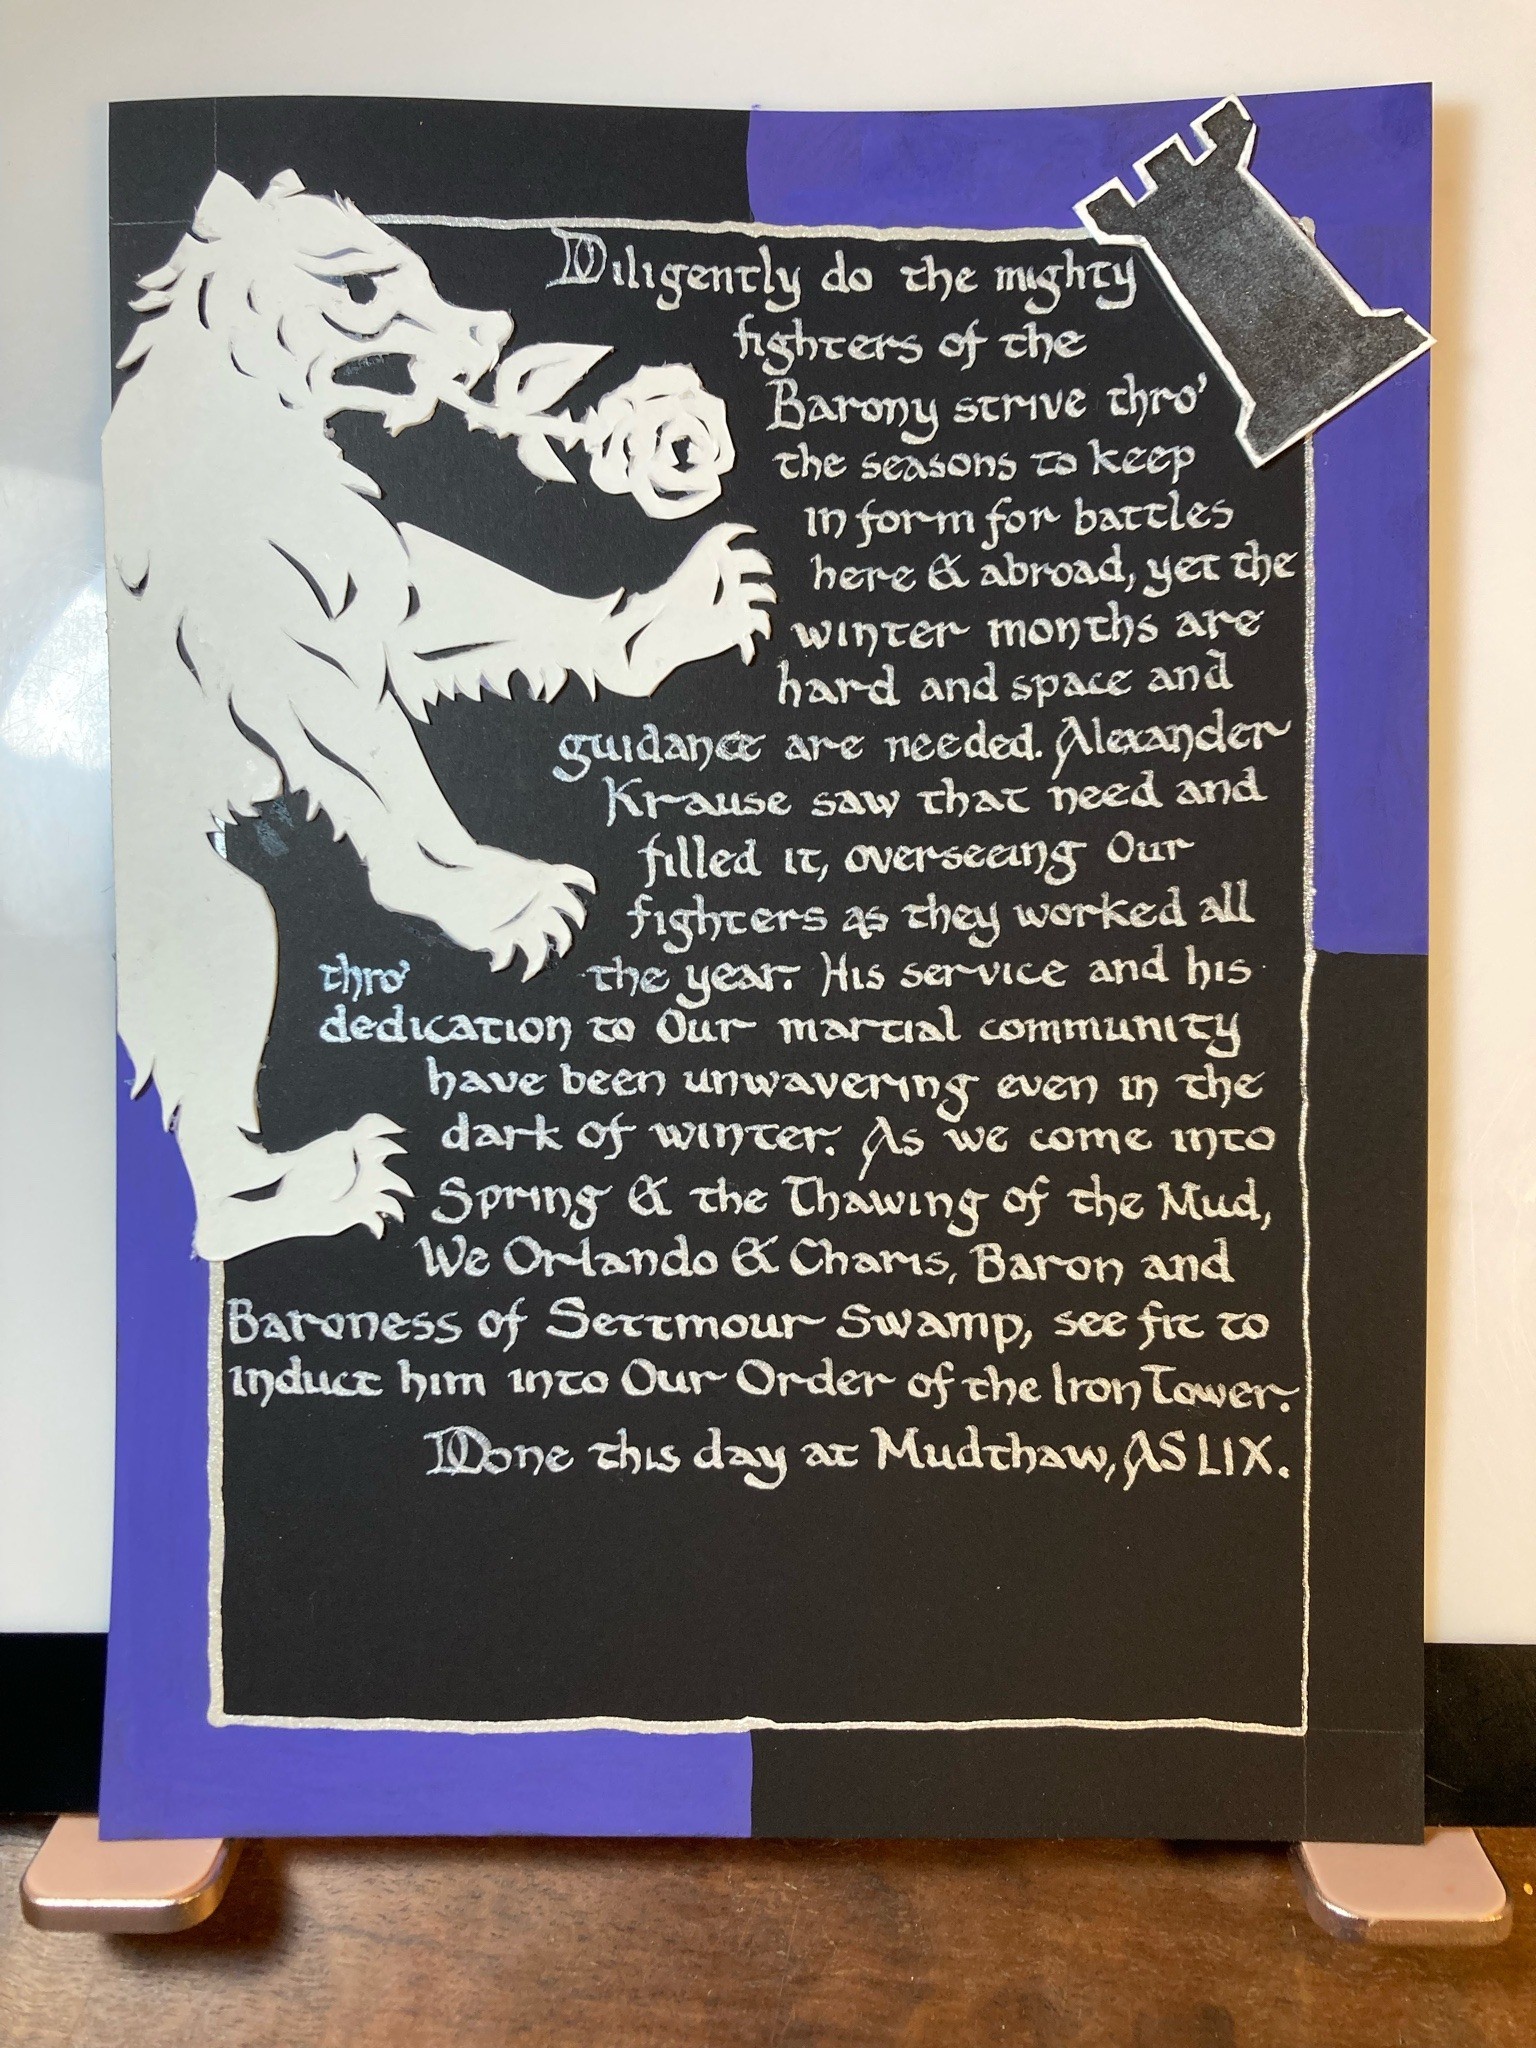 Diligently do the mighty
fighters of the
Barony strive thro'
the seasons to keep
in form for battles
here & abroad, yet the
winter months are
hard and space and
guidance are needed. Alexander
Krause saw that need and
filled it, overseeing Our
fighters as they worked all
thro' the year. His service and his
dedication to Our martial community
have been unwavering even in the
dark of winter. As we come into
Spring & the Thawing of the Mud,
We Orlando & Charis, Baron and
Baroness of Settmour Swamp, see fit to
induct him into Our Order of the Iron Tower.
Done this day at Mudthaw, AS LIX.